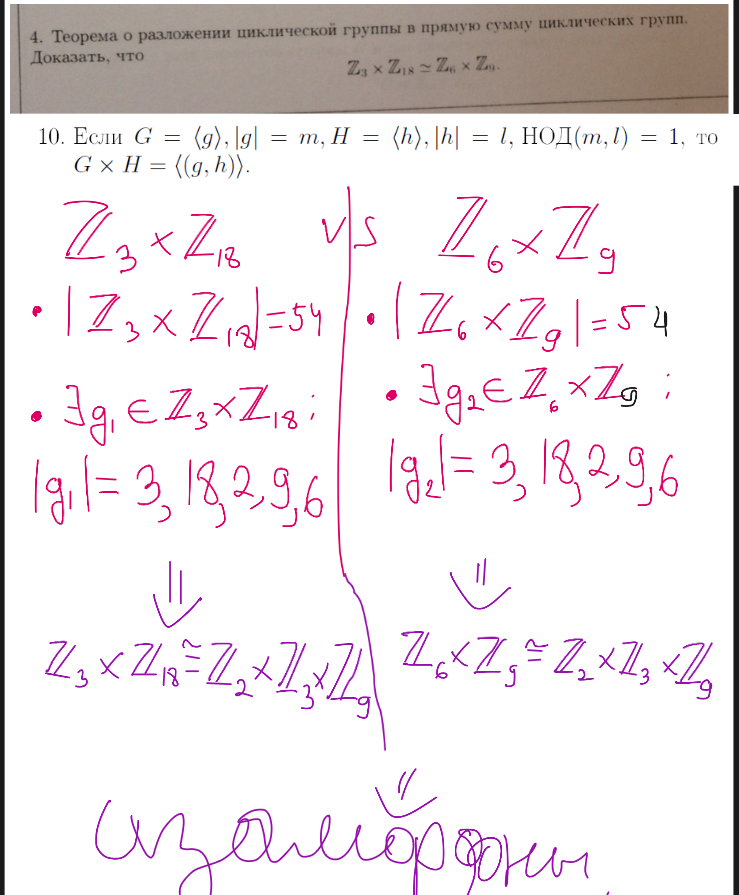 4. Теорема о разложении циклической группы в прямую сумму циклических групп.
Доказать, что
ℤ₃ × ℤ₁₈ ≃ ℤ₆ × ℤ₉.
10. Если G = ⟨g⟩, |g| = m, H = ⟨h⟩, |h| = l, НОД(m, l) = 1, то
G × H = ⟨(g, h)⟩.
ℤ₃ × ℤ₁₈ v|s ℤ₆ × ℤ₉
• |ℤ₃ × ℤ₁₈| = 54
• |ℤ₆ × ℤ₉| = 54
• ∃g₁ ∈ ℤ₃ × ℤ₁₈ :
|g₁| = 3, 18, 2, 9, 6
• ∃g₂ ∈ ℤ₆ × ℤ₉ :
|g₂| = 3, 18, 2, 9, 6
⇓ ⇓
ℤ₃ × ℤ₁₈ ≅ ℤ₂ × ℤ₃ × ℤ₉
ℤ₆ × ℤ₉ ≅ ℤ₂ × ℤ₃ × ℤ₉
⇓
изоморфны.